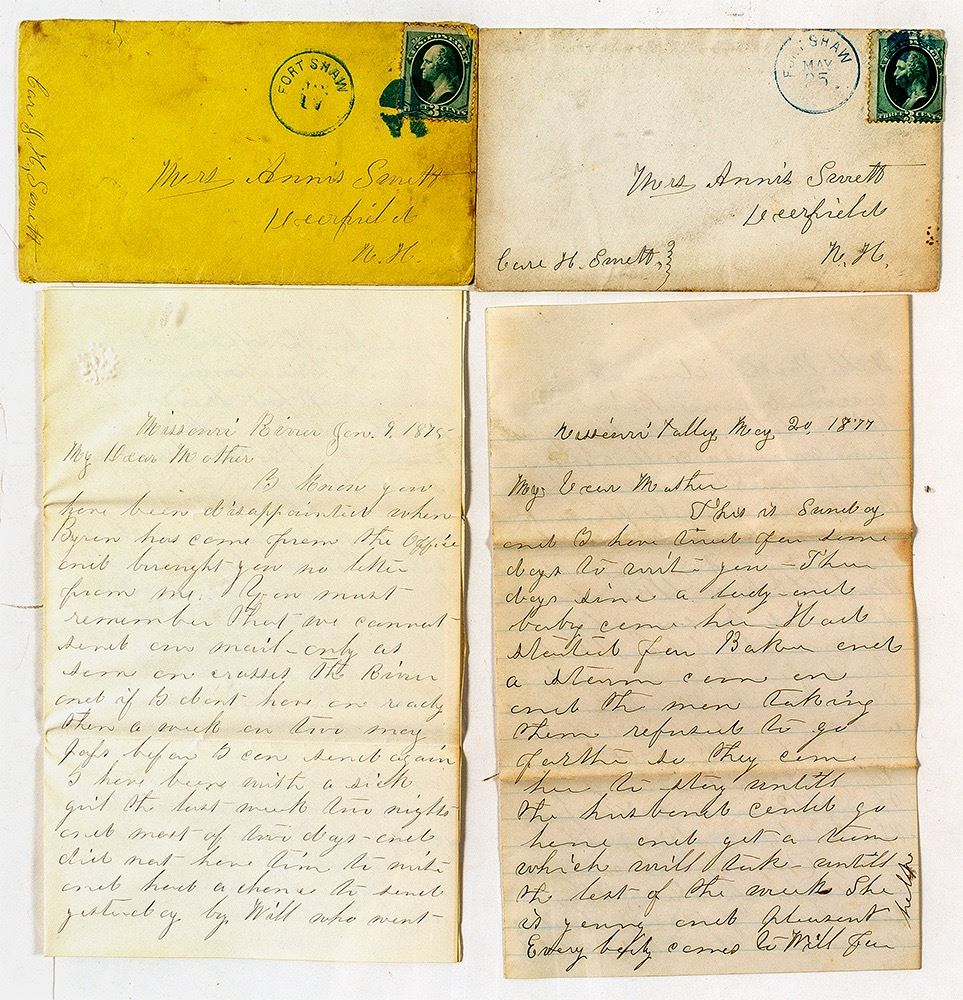 FORT SHAW
3 CENTS
Care J. H. Smett
Mrs Annis Smett
Deerfield
N. H.
FORT SHAW
MAY
25
THREE 3 CENTS
Mrs Annis Smett
Deerfield
Care H. Smett,
N. H.
Missouri River Jan. 9, 1875
My Dear Mother
I know you
have been disappointed when
Byren has come from the Office
and brought you no letter
from me. You must
remember that we cannot
send our mail only as
some on crosses the River
and if I dont have on ready
then a week or two may
pass before I can send again
I have been with a sick
girl the last week two nights
and most of two days and
did not have time to write
and had a chance to send
yesterday by Will who went
Missouri Vally May 20, 1877
My Dear Mother
This is Sunday
and I have tried for some
days to write you - Three
days since a lady and
baby came her Had
started for Baker and
a storm came on
and the men taking
them refused to go
farther so they came
her to stay untill
the husband could go
home and get a team
which will take untill
the last of the week She
is young and pleasant
Every body comes to Will for
help